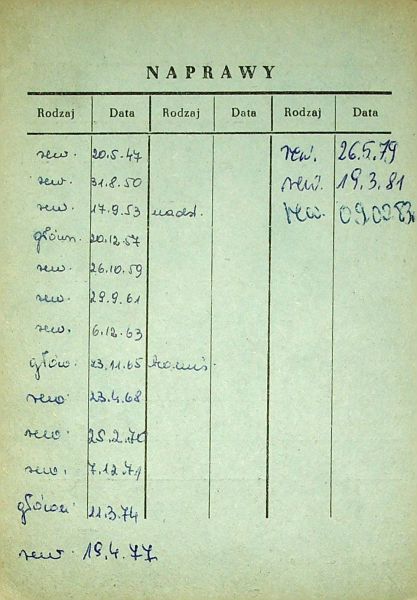 NAPRAWY
Rodzaj Data Rodzaj Data Rodzaj Data
rew. 20.5.47 rew. 26.5.79
rew. 31.8.50 rew. 19.3.81
rew. 17.9.53 nadst. rew. 09.02 83
główn. 20.12.57
rew. 26.10.59
rew. 29.9.61
rew. 6.12.63
głów. 23.11.65
rew 23.4.68
rew 25.2.70
rew. 7.12.71
główn 11.3.74
rew. 19.4.77